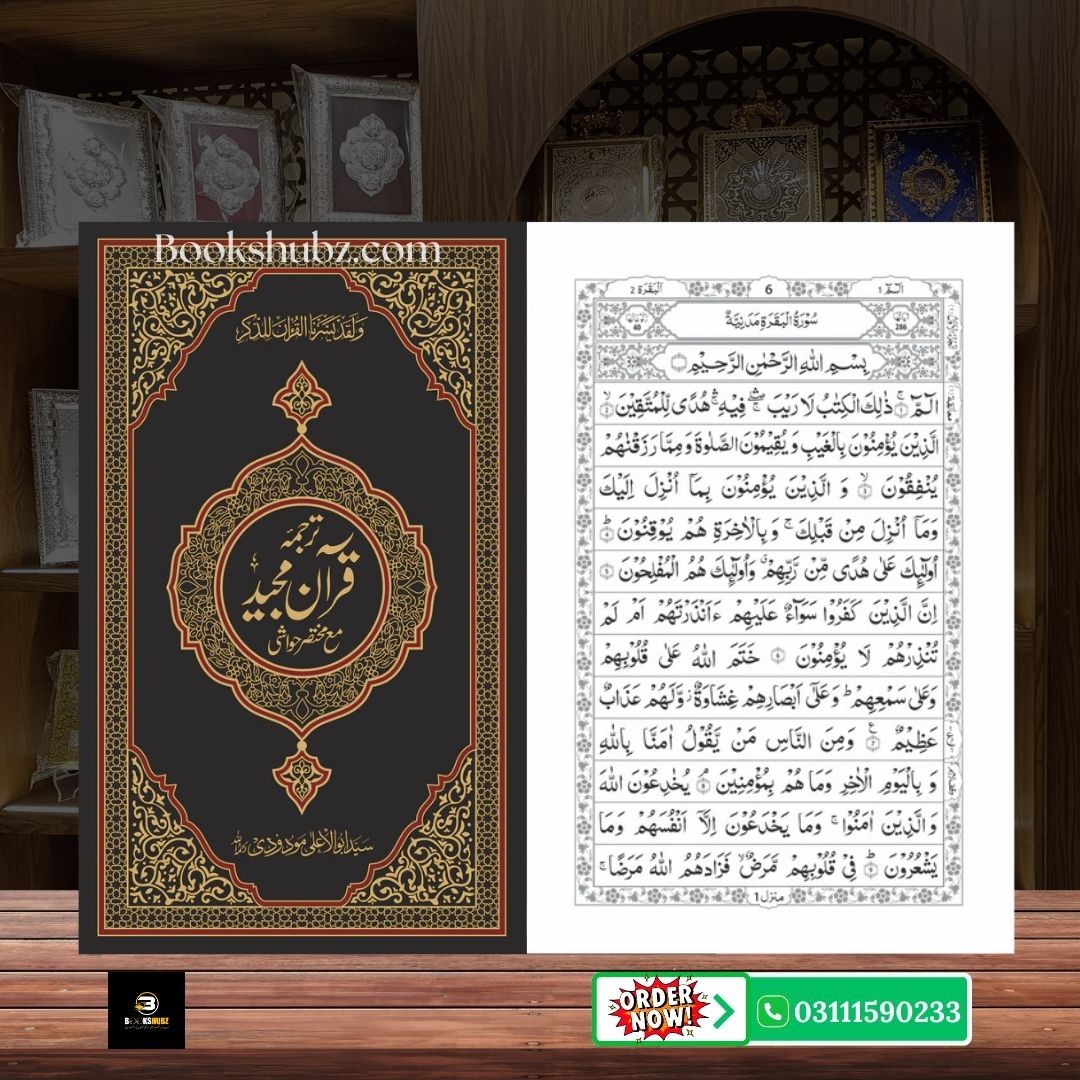 Bookshubz.com
وَلَقَدْ يَسَّرْنَا الْقُرْاٰنَ لِلذِّكْرِ
ترجمۂ
قرآن مجید
مع مختصر حواشی
سید ابوالاعلیٰ مودودی
اَلْبَقَرَة 2
6
الٓمّٓ 1
سُوْرَةُ الْبَقَرَةِ مَدَنِيَّةٌ
40
286
بِسْمِ اللّٰهِ الرَّحْمٰنِ الرَّحِيْمِ
الٓمّٓ ۚ ذٰلِكَ الْكِتٰبُ لَا رَيْبَ ۛ فِيْهِ ۛ هُدًى لِّلْمُتَّقِيْنَ ۙ
الَّذِيْنَ يُؤْمِنُوْنَ بِالْغَيْبِ وَ يُقِيْمُوْنَ الصَّلٰوةَ وَ مِمَّا رَزَقْنٰهُمْ
يُنْفِقُوْنَ ۙ وَ الَّذِيْنَ يُؤْمِنُوْنَ بِمَاۤ اُنْزِلَ اِلَيْكَ
وَمَاۤ اُنْزِلَ مِنْ قَبْلِكَ ۚ وَ بِالْاٰخِرَةِ هُمْ يُوْقِنُوْنَ ؕ
اُولٰٓئِكَ عَلٰى هُدًى مِّنْ رَّبِّهِمْ ۙ وَ اُولٰٓئِكَ هُمُ الْمُفْلِحُوْنَ
اِنَّ الَّذِيْنَ كَفَرُوْا سَوَآءٌ عَلَيْهِمْ ءَاَنْذَرْتَهُمْ اَمْ لَمْ
تُنْذِرْهُمْ لَا يُؤْمِنُوْنَ خَتَمَ اللّٰهُ عَلٰى قُلُوْبِهِمْ
وَعَلٰى سَمْعِهِمْ ؕ وَعَلٰۤى اَبْصَارِهِمْ غِشَاوَةٌ ۡ وَّلَهُمْ عَذَابٌ
عَظِيْمٌ وَمِنَ النَّاسِ مَنْ يَّقُوْلُ اٰمَنَّا بِاللّٰهِ
وَ بِالْيَوْمِ الْاٰخِرِ وَمَا هُمْ بِمُؤْمِنِيْنَ ۘ يُخٰدِعُوْنَ اللّٰهَ
وَالَّذِيْنَ اٰمَنُوْا ۚ وَمَا يَخْدَعُوْنَ اِلَّاۤ اَنْفُسَهُمْ وَمَا
يَشْعُرُوْنَ ؕ فِيْ قُلُوْبِهِمْ مَّرَضٌ ۙ فَزَادَهُمُ اللّٰهُ مَرَضًا ۚ
منزل 1
BOOKSHUBZ
ORDER
NOW!
03111590233